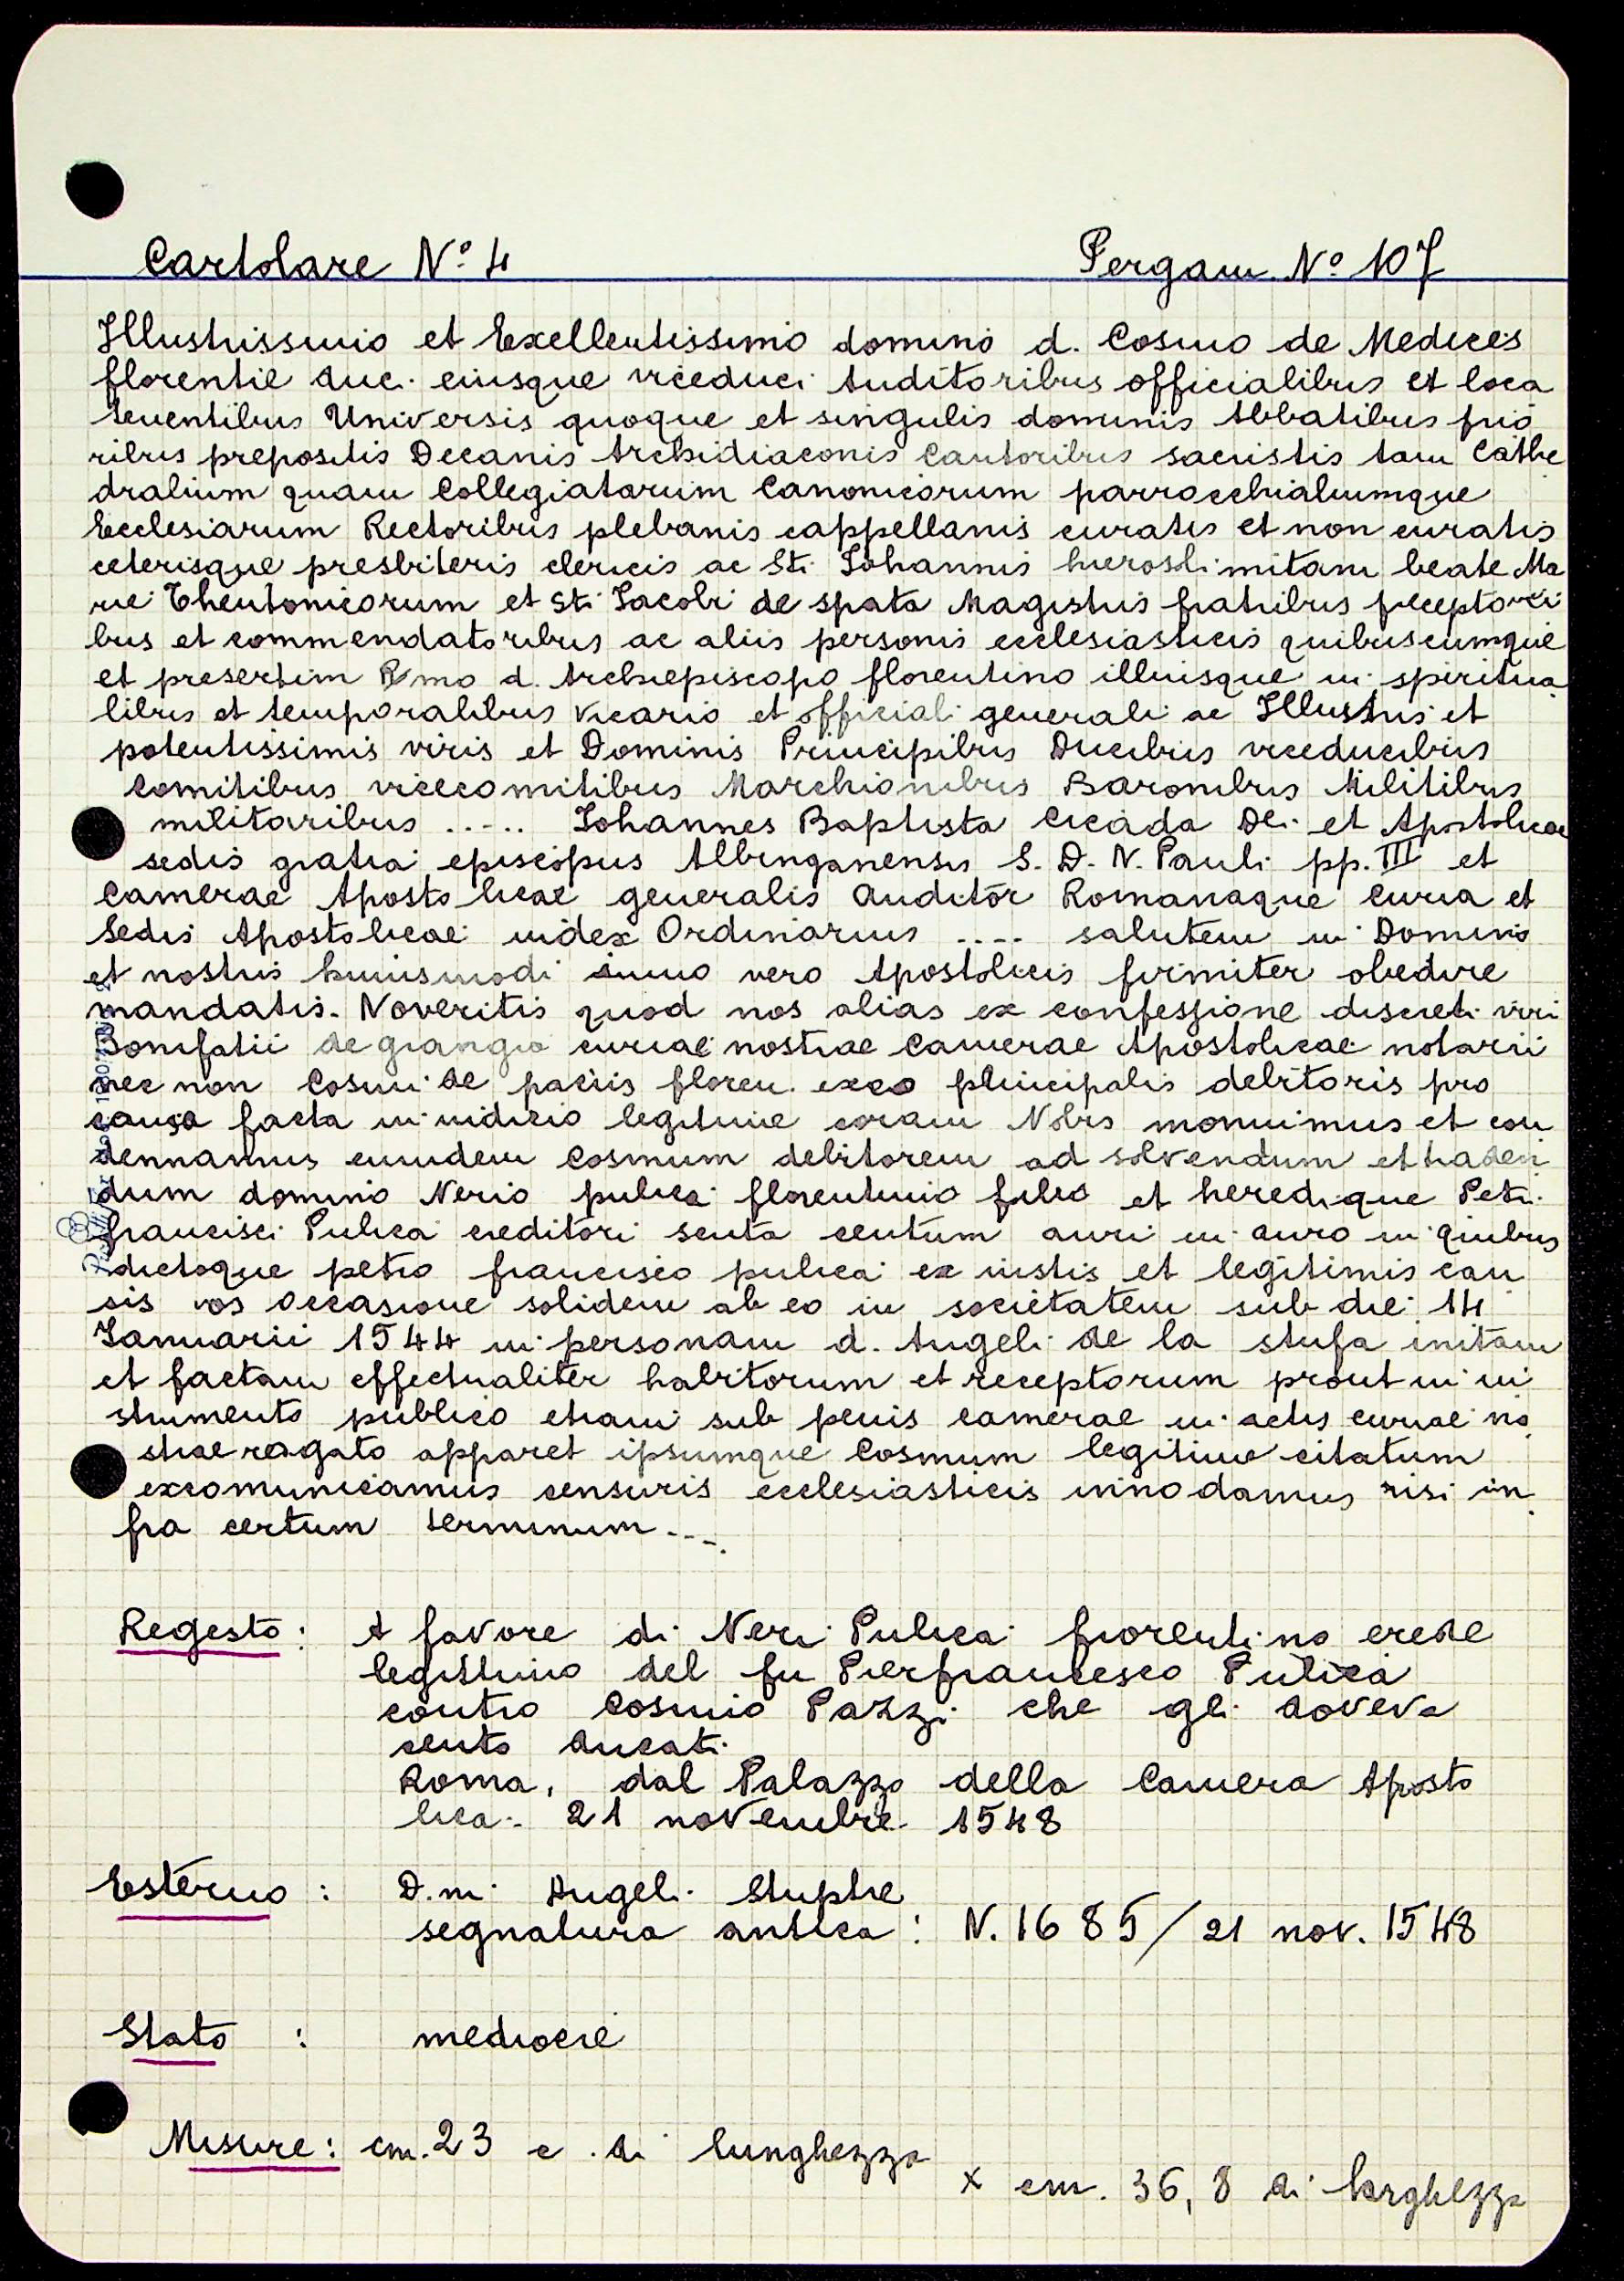 Cartolare N° 4 Pergam. N° 107
Illustrissimo et Exellentissimo domino d. Cosmo de Medices
florentie duci eiusque viceduci Auditoribus officialibus et loca
tenentibus Universis quoque et singulis dominis Abbatibus prio
ribus prepositis Decanis Archidiaconis Cantoribus sacristis tam Cathe
dralium quam Collegiatarum Canonicorum parrocchialiumque
Ecclesiarum Rectoribus plebanis cappellanis curatis et non curatis
ceterisque presbiteris clericis ac Sti Iohannis hierosolimitani beate Ma
rie Theutonicorum et Sti Iacobi de spata Magistris fratribus preceptori
bus et commendatoribus ac aliis personis ecclesiasticis quibuscumque
et presertim Rmo d. Archiepiscopo florentino illiusque in spiritua
libus et temporalibus vicario et officiali generali ac Illustris et
potentissimis viris et Dominis Principibus Ducibus viceducibus
comitibus vicecomitibus Marchionibus Baronibus Militibus
militaribus ..... Iohannes Baptista Cicada Dei et Apostolicae
sedis gratia episcopus Albinganensis S. D. N. Pauli pp. III et
Camerae Apostolicae generalis Auditor Romanaque curia et
Sedis Apostolicae iudex Ordinarius .... salutem in Domino
et nostris huiusmodi immo vero Apostolicis firmiter obedire
mandatis. Noveritis quod nos alias ex confessione discreti viri
Bonifatii de giangio curiae nostrae Camerae Apostolicae notarii
nec non Cosmi de paciis floren. exco principalis debitoris pro
causa facta in iudicio legitime coram Nobis monuimus et con
dennamus eumdem Cosmum debitorem ad solvendum et haben
dum domino Nerio pulica florentino filio et heredique Petri
francisci Pulica creditori scuta centum auri in auro in quibus
dictoque petro francisco pulica ex iustis et legitimis cau
sis vos occasione solidem ab eo in societatem sub die 14
Ianuarii 1544 in personam d. Angeli de la stufa initam
et factam effectualiter habitorum et receptorum prout in in
strumento publico etiam sub penis camerae in actis curiae no
strae rogato apparet ipsumque Cosmum legitime citatum
excomunicamus censuris ecclesiasticis innodamus nisi in
fra certum terminum....
Regesto: A favore di Neri Pulica fiorentino erede
legittimo del fu Pierfrancesco Pulica
contro Cosimo Pazzi che gli doveva
cento ducati.
Roma, dal Palazzo della Camera Aposto
lica. 21 novembre 1548
Esterno: D.ni Angeli Stuphe
segnatura antica: N. 1685/21 nov. 1548
Stato: mediocre
Misure: cm. 23 c. di lunghezza
x cm. 36,8 di larghezza